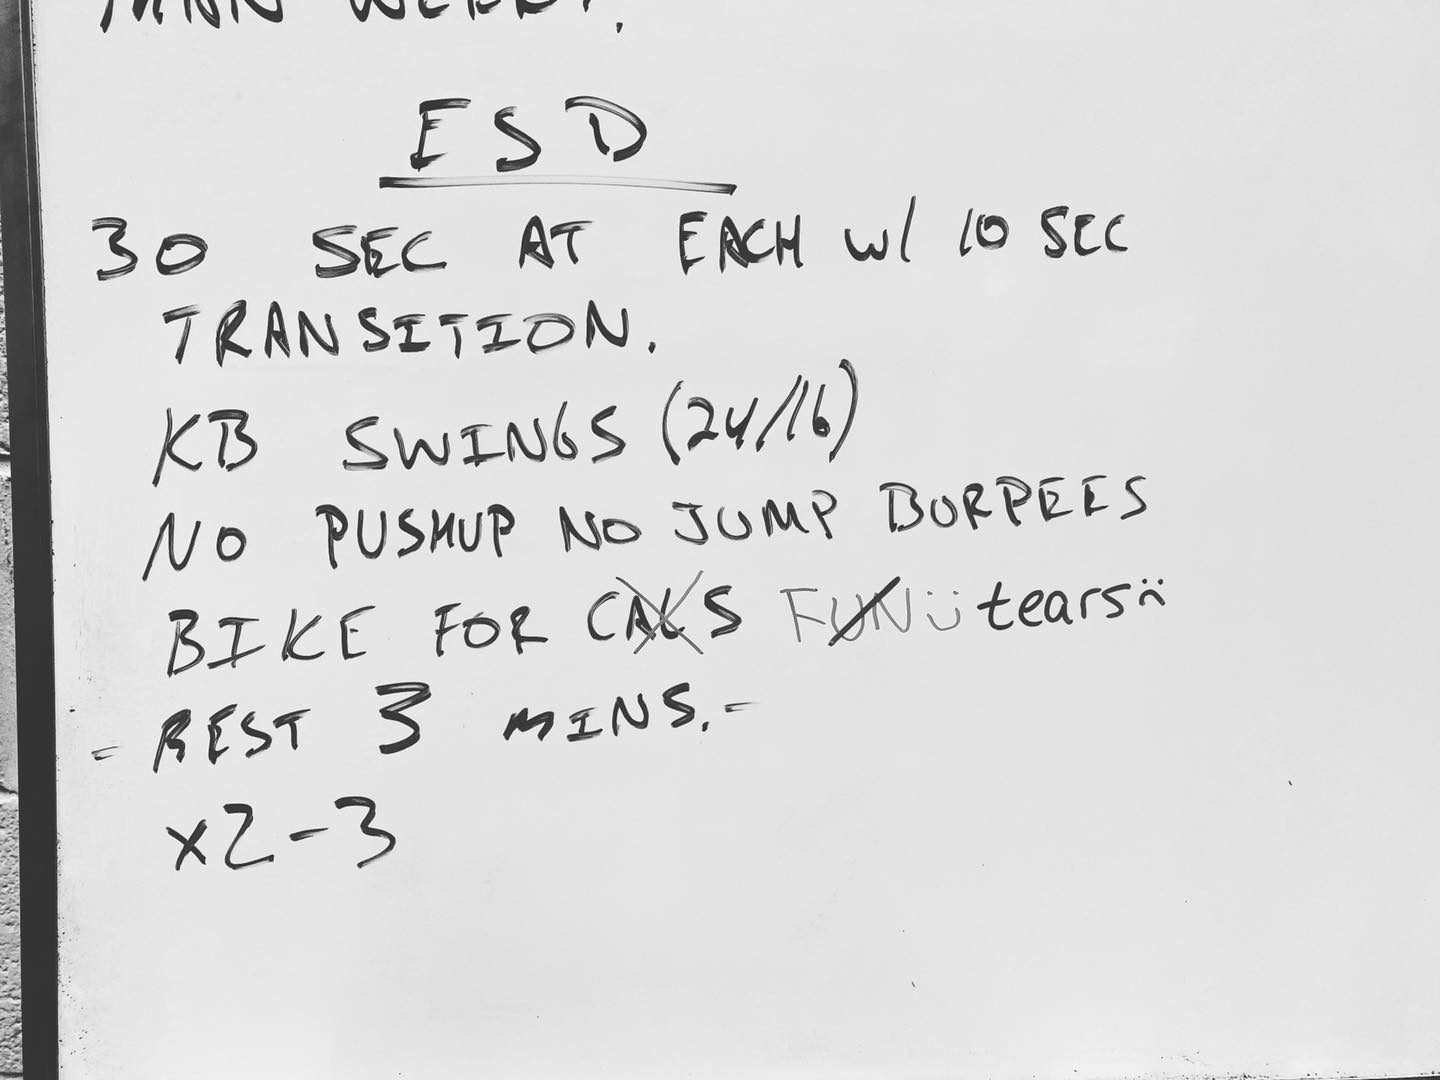 ESD
30 SEC AT EACH w/ 10 SEC
TRANSITION.
KB SWINGS (24/16)
NO PUSHUP NO JUMP BURPEES
BIKE FOR CALS FUN :) tears :(
- REST 3 MINS. -
x2-3